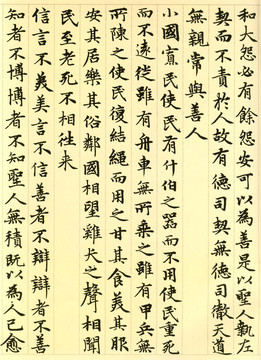 和大怨必有餘怨安可以為善是以聖人執左
契而不責於人故有德司契無德司徹天道
無親常與善人
小國寡民使民有什伯之器而不用使民重死
而不遠徙雖有舟車無所乘之雖有甲兵無
所陳之使民復結繩而用之甘其食美其服
安其居樂其俗鄰國相望雞犬之聲相聞
民至老死不相往来
信言不美美言不信善者不辯辯者不善
知者不博博者不知聖人無積既以為人己愈